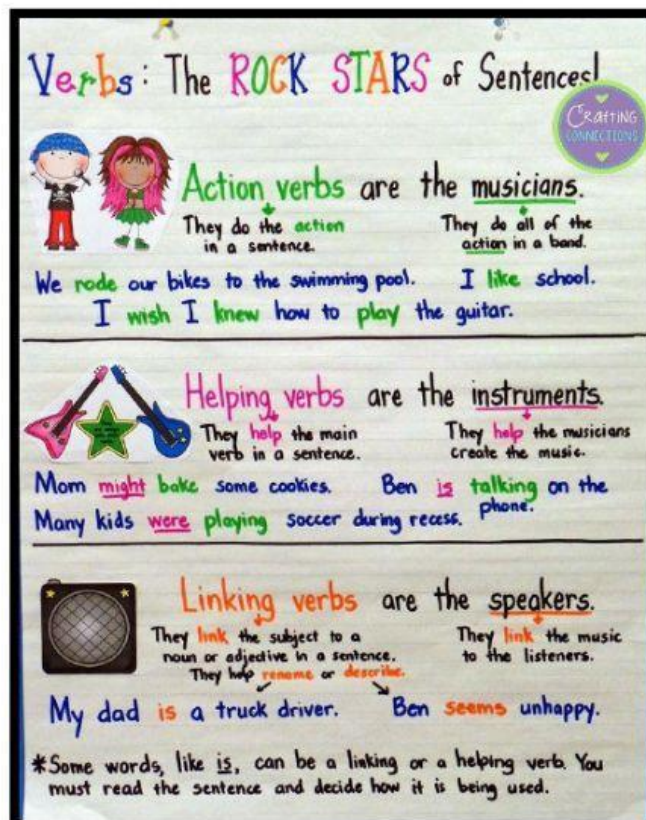 Verbs: The ROCK STARS of Sentences!
CRAfTING
CONNECTIONS
Action verbs are the musicians.
They do the action
in a sentence.
They do all of the
action in a band.
We rode our bikes to the swimming pool. I like school.
I wish I knew how to play the guitar.
Helping verbs are the instruments.
They help the main
verb in a sentence.
They help the musicians
create the music.
Mom might bake some cookies. Ben is talking on the
phone.
Many kids were playing soccer during recess.
Linking verbs are the speakers.
They link the subject to a
noun or adjective in a sentence.
They help rename or describe.
They link the music
to the listeners.
My dad is a truck driver. Ben seems unhappy.
*Some words, like is, can be a linking or a helping verb. You
must read the sentence and decide how it is being used.